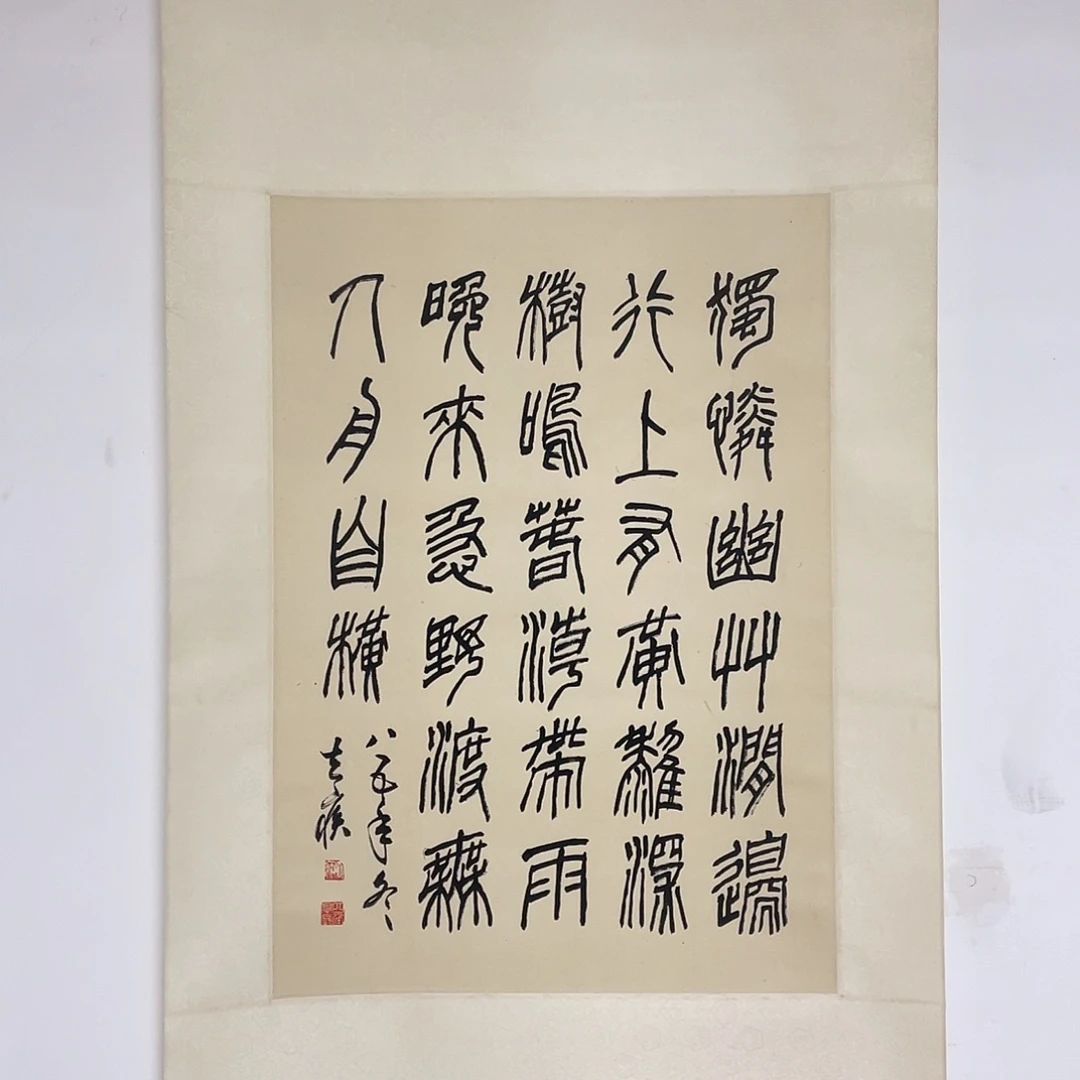 獨憐幽艸澗邊
行上有黃鸝深
樹鳴春潮帶雨
晚來急野渡無
人舟自橫
八五年冬
去疾